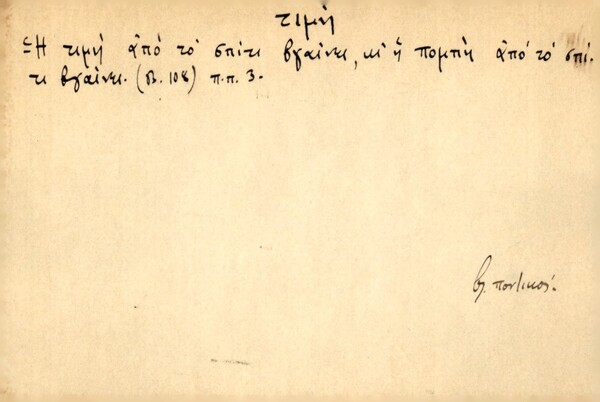 τιμή
– Ἡ τιμὴ ἀπὸ τὸ σπίτι βγαίνει, κι ἡ πομπὴ ἀπὸ τὸ σπί-
τι βγαίνει. (Β. 108) π.π. 3.
βλ. ποντικός.